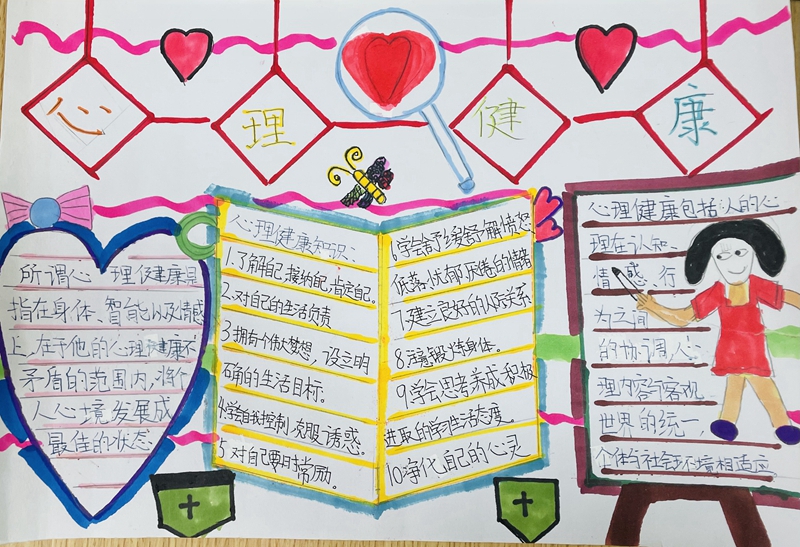 心理健康
所谓心理健康是
指在身体、智能以及情感
上,在于他的心理健康不
矛盾的范围内,将个
人心境发展成
最佳的状态
心理健康知识:
1.了解自己,接纳自己,肯定自己。
2.对自己的生活负责
3.拥有个伟大梦想,设立明
确的生活目标。
4.学会自我控制,克服诱惑.
5.对自己要日常励。
6.学会舒缓舒解愤怒
低落,忧郁厌倦的情绪
7.建立良好的人际关系
8.注意锻炼身体。
9.学会思考养成积极
进取的学习生活态度。
10.净化自己的心灵
心理健康包括:人的心
理在认知、
情感、行
为之间
的协调,人心
理内容与客观
世界的统一,
个体与社会环境相适应